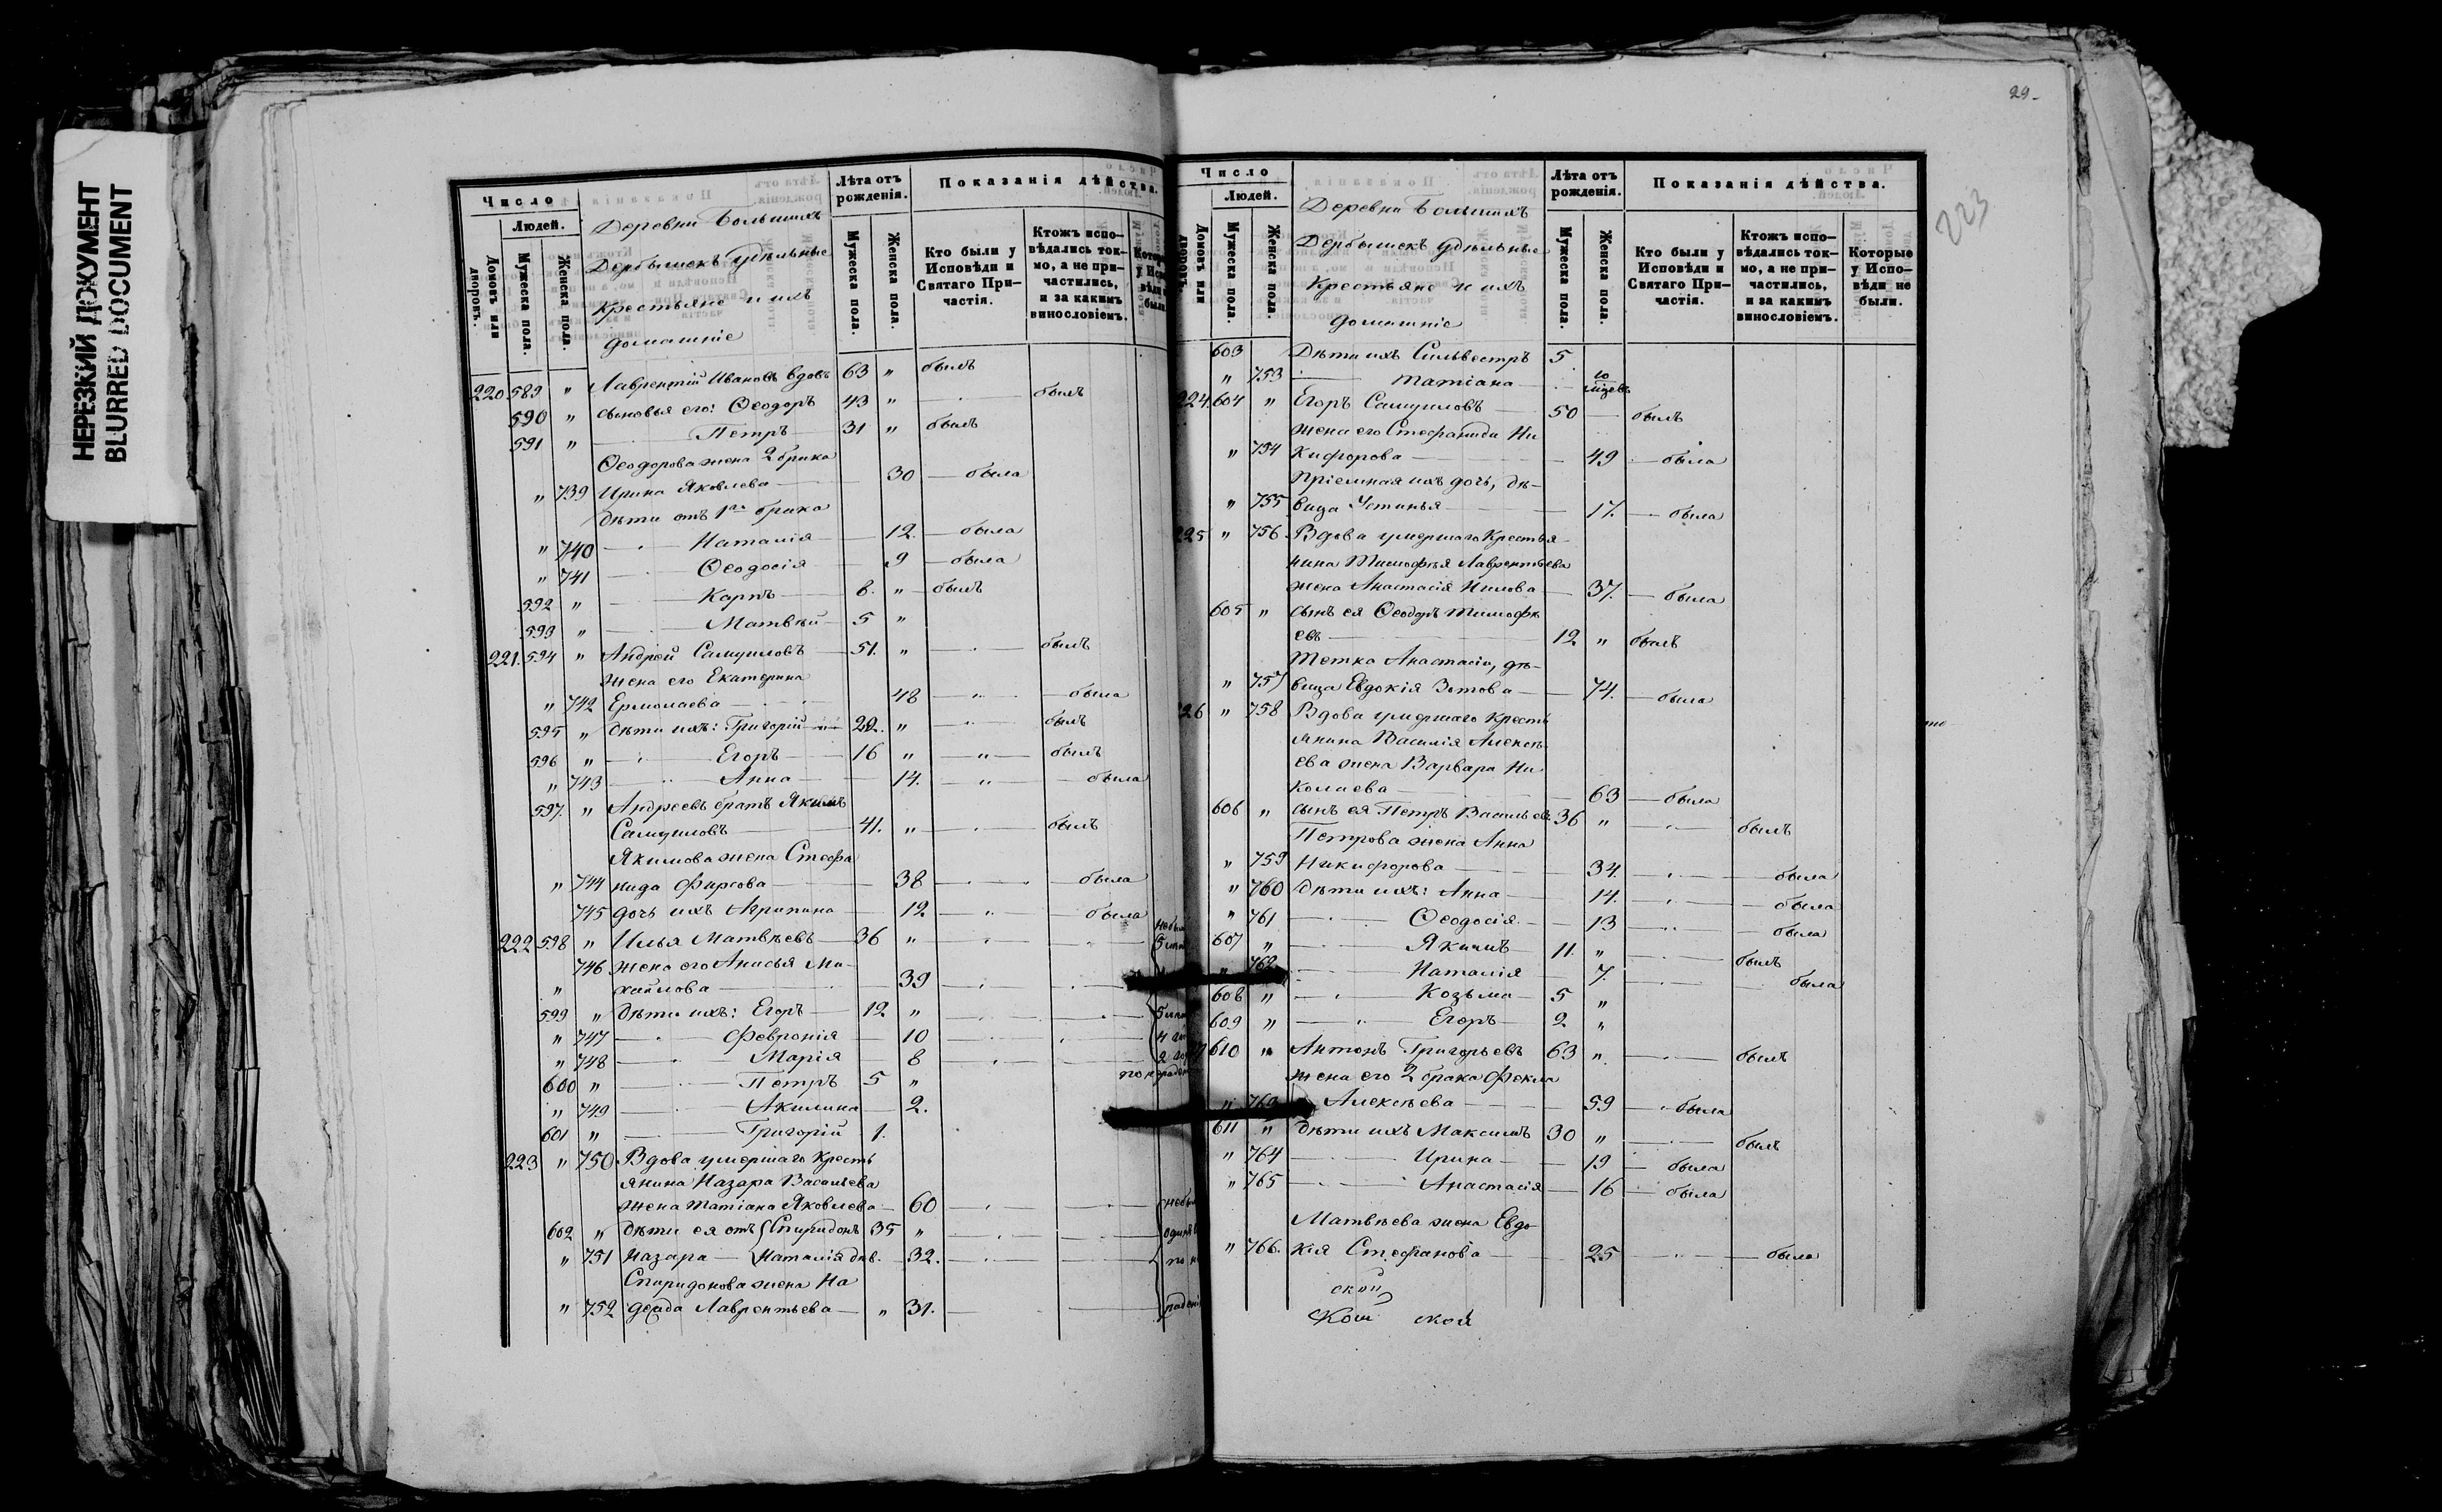 НЕРЕЗКИЙ ДОКУМЕНТ
BLURRED DOCUMENT
Число
Людей.
Домовъ или дворовъ.
Мужеска пола.
Женска пола.
Деревни Большихъ
Дербышекъ удѣльные
крестьяне и ихъ
домашніе
Лѣта отъ рожденія.
Мужеска пола.
Женска пола.
Показанія дѣйства.
Кто были у Исповѣди и Святаго Причастія.
Ктожъ исповѣдались токмо, а не причастились, и за какимъ винословіемъ.
220 589 " Лаврентій Ивановъ вдовъ 63 " былъ
590 " сыновья его: Ѳеодоръ 43 " былъ
591 " Петръ 31 " былъ
Ѳеодорова жена 2 брака
" 739 Ирина Яковлева 30 была
дѣти отъ 1го брака
" 740 Наталія 12. была
" 741 Ѳеодосія 9 была
592 " Карпъ 8. " былъ
593 " Матвѣй 5 "
221. 594 " Андрей Самуиловъ 51. " былъ
жена его Екатерина
" 742 Ермолаева 48 была
595 " дѣти ихъ: Григорій 22. " былъ
596 " Егоръ 16 " былъ
" 743 Анна 14. была
597. " Андреевъ братъ Якимъ
Самуиловъ 41. " былъ
Якимова жена Стефа
" 744 нида Фирсова 38 была
745 дочь ихъ Агрипина 12 была
222 598 " Илья Матвѣевъ 36 "
746 жена его Анисья Ми-
" хайлова 39
599 " дѣти ихъ: Егоръ 12 "
" 747 Февронія 10
" 748 Марія 8
600 " Петръ 5 "
" 749 Акилина 2.
601 " Григорій 1.
223 " 750 Вдова умершаго кресть
янина Назара Васильева
жена Татіана Яковлева 60
602 " дѣти ея отъ Спиридонъ 35 "
" 751 Назара Наталія дѣв. 32.
Спиридонова жена На
" 752 дежда Лаврентьева " 31.
29
223
Число
Людей.
Домовъ или дворовъ.
Мужеска пола.
Женска пола.
Деревни Большихъ
Дербышекъ удѣльные
крестьяне и ихъ
домашніе
Лѣта отъ рожденія.
Мужеска пола.
Женска пола.
Показанія дѣйства.
Кто были у Исповѣди и Святаго Причастія.
Ктожъ исповѣдались токмо, а не причастились, и за какимъ винословіемъ.
Которые у Исповѣди не были.
603 Дѣти ихъ Сильвестръ 5
" 753 Татіана 10
224. 604 " Егоръ Самуиловъ 50 былъ
жена его Стефанида Ни
" 754 кифорова 49 была
Пріемная ихъ дочь, дѣ-
" 755 вица Устинья 17. была
225 " 756 Вдова умершаго кресть я-
нина Тимофѣя Лаврентьева
жена Анастасія Нилова 37. была
605 " сынъ ея Ѳеодоръ Тимофѣ
евъ 12 " былъ
Тетка Анастасіи, дѣ-
" 757 вица Евдокія Зотова 74. была
226 " 758 Вдова умершаго кресть
янина Василія Алексѣ-
ева жена Варвара Ни
колаева 63 была
606 " сынъ ея Петръ Васильевъ 36 " былъ
Петрова жена Анна
" 759 Никифорова 34. была
" 760 Дѣти ихъ: Анна 14. была
" 761 Ѳеодосія 13 была
607 " Якимъ 11. " былъ
" 762 Наталія 7. была
608 " Козьма 5 "
609 " Егоръ 2 "
610 " Антонъ Григорьевъ 63 " былъ
жена его 2 брака Фекла
" 763 Алексѣева 59 была
611 " дѣти ихъ Максимъ 30 " былъ
" 764 Ирина 19 была
" 765 Анастасія 16 была
Матвѣева жена Евдо
" 766. кія Стефанова 25 была